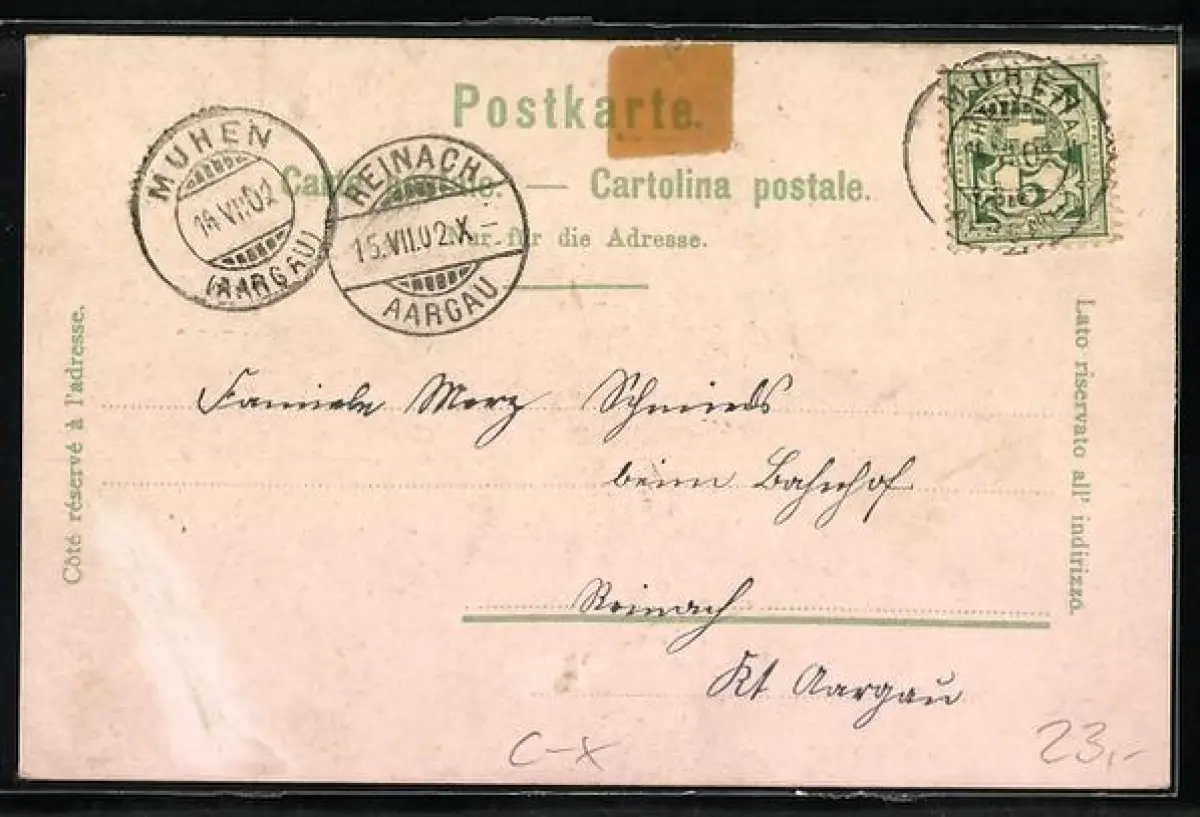 Postkarte.
Carte postale. — Cartolina postale.
Nur für die Adresse.
MUHEN
14.VII.02
(AARGAU)
REINACH
15.VII.02.X-
AARGAU
MUHEN
5
Côté réservé à l'adresse.
Lato riservato all' indirizzo.
Familie Merz Schmieds
beim Bahnhof
Reinach
Kt Aargau
C-X
23,-